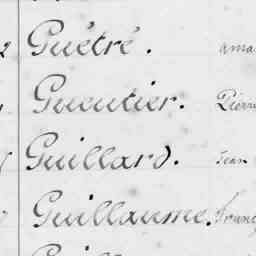 2 Guétré. ama
Gueutier. Pierre
Guillard. Jean
Guillaume. Franç